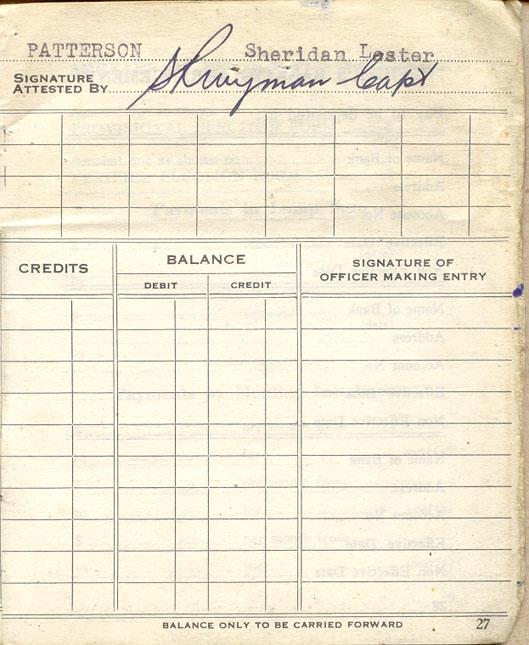 PATTERSON Sheridan Lester
SIGNATURE
ATTESTED BY Capt
CREDITS
BALANCE
DEBIT CREDIT
SIGNATURE OF
OFFICER MAKING ENTRY
BALANCE ONLY TO BE CARRIED FORWARD 27